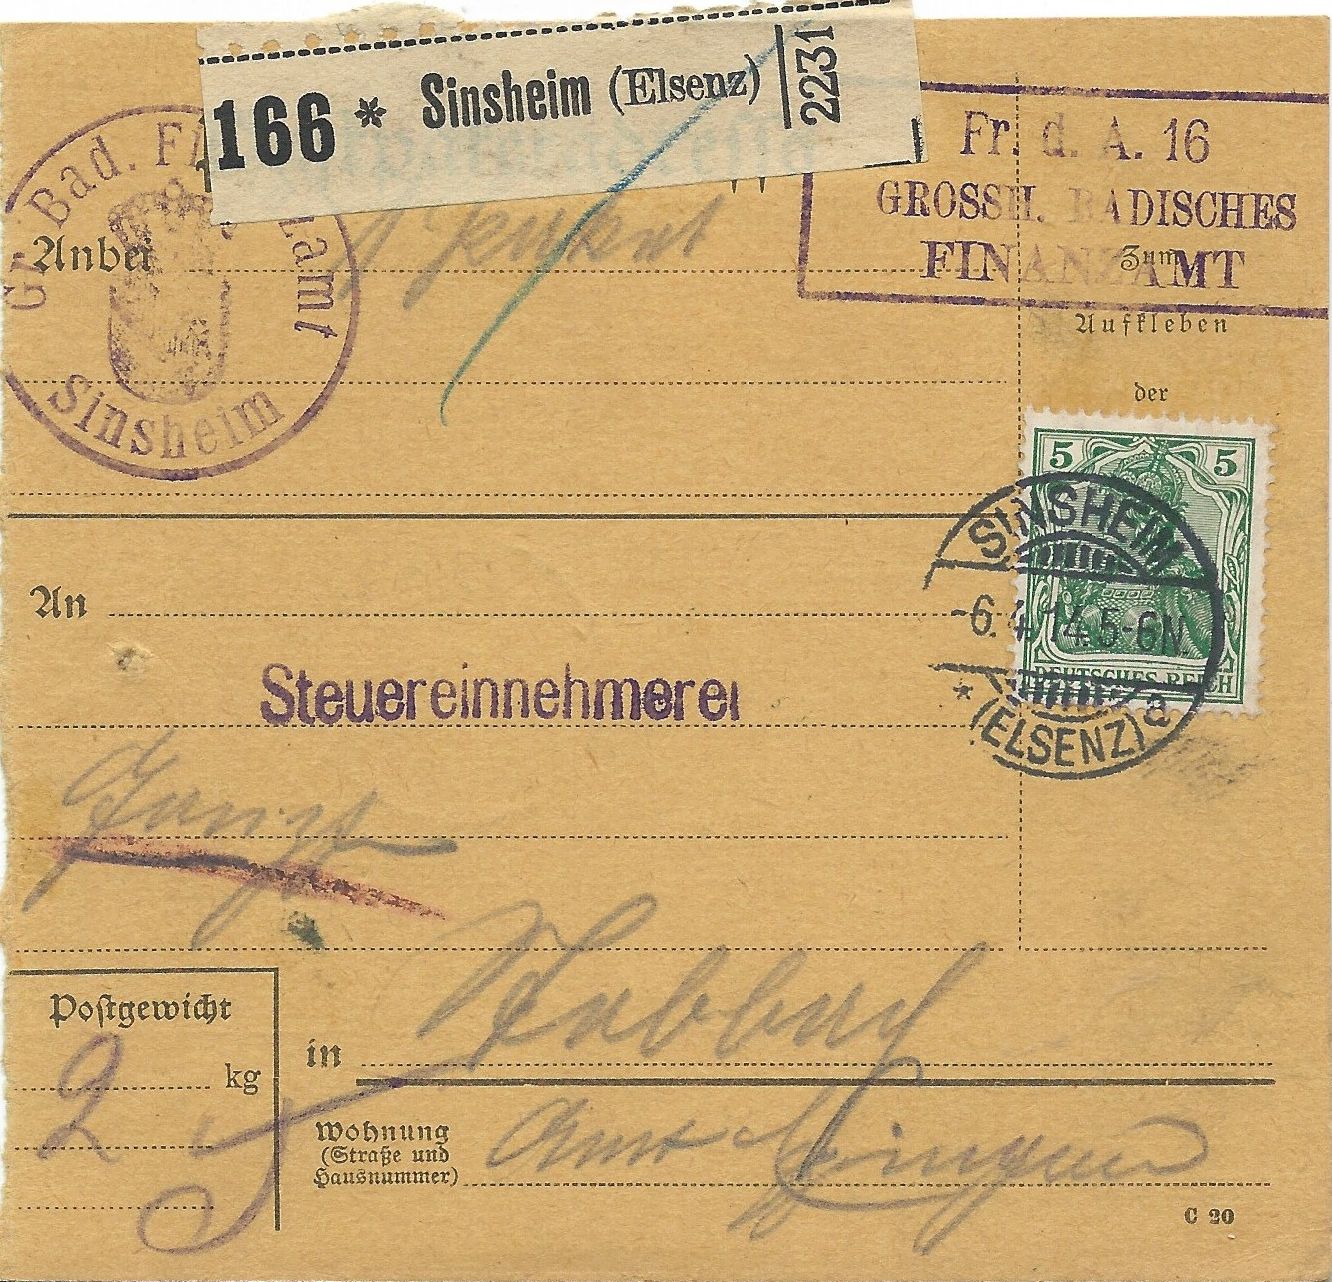 166 * Sinsheim (Elsenz) 2231
Gr. Bad. Fi zamt
Sinsheim
Fr. d. A. 16
GROSSH. BADISCHES
FINANZAMT
Anbei 1
Zum
Aufkleben
der
5 5
DEUTSCHES REICH
SINSHEIM
-6.4.14.5-6N.
* (ELSENZ) a
An
Steuereinnehmerei
Postgewicht
2 kg
in
Wohnung
(Straße und
Hausnummer)
Amt
C 20